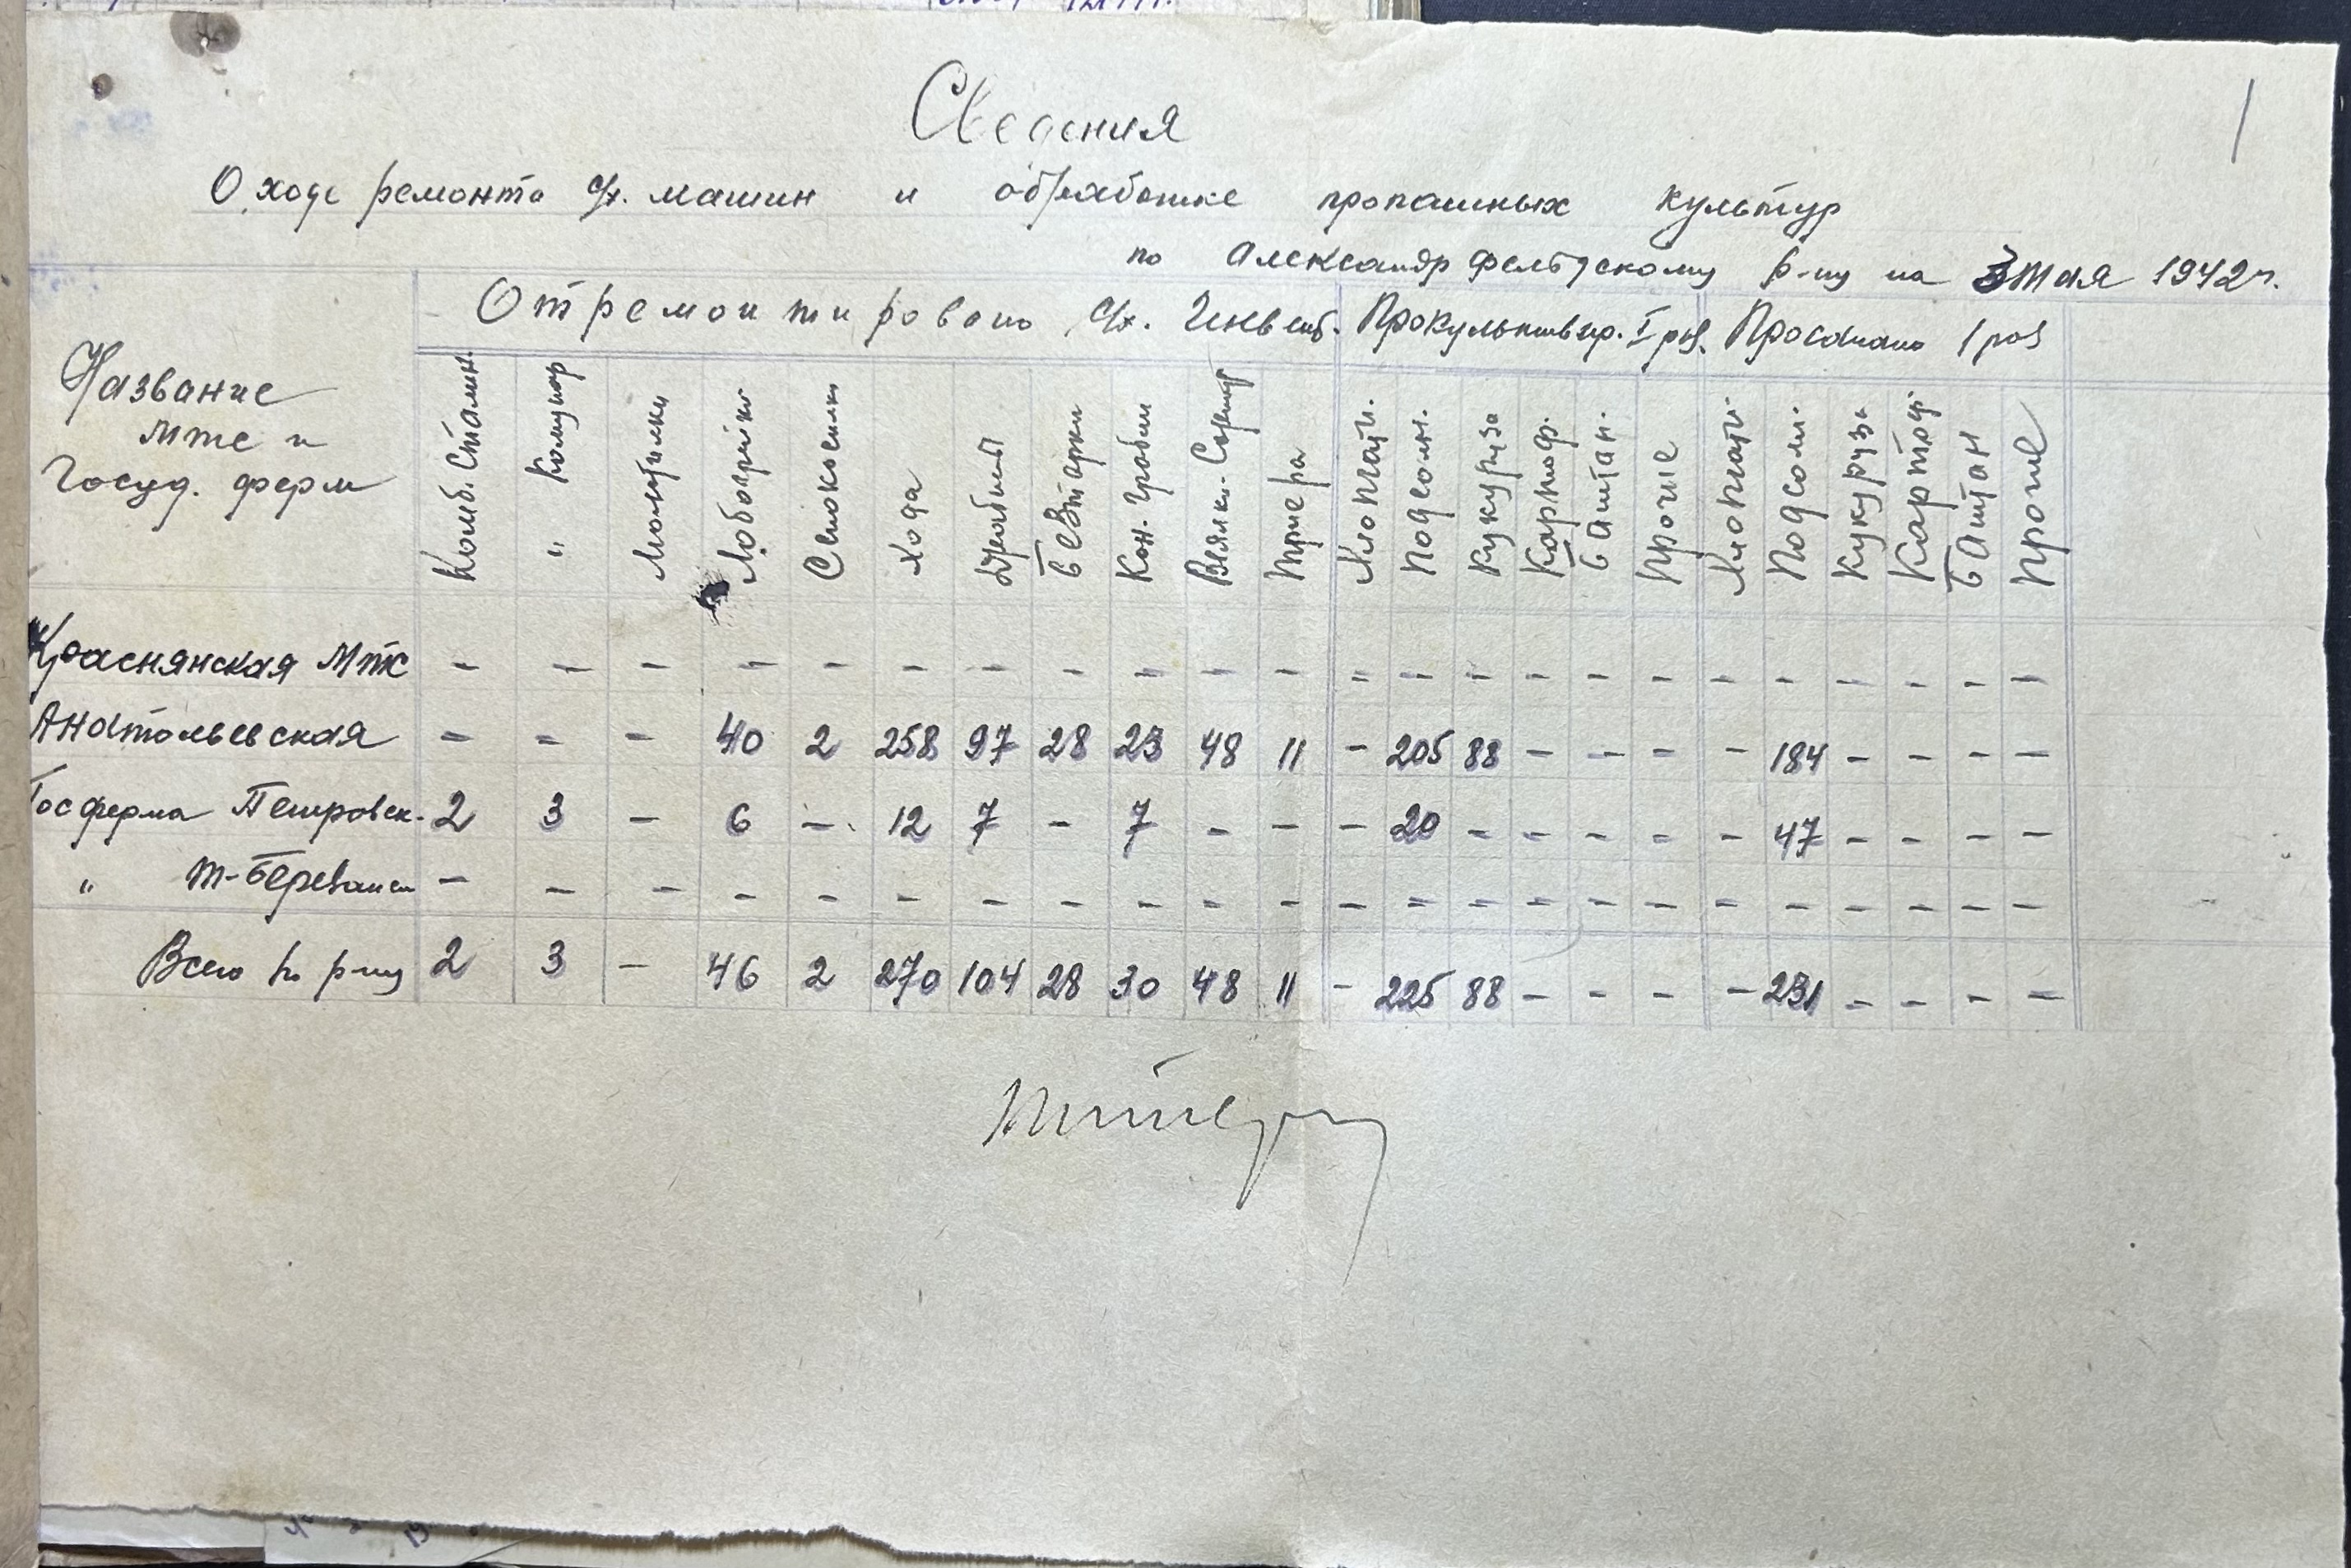 Сведения
О ходе ремонта с/х. машин и обработке пропашных культур
по Александрфельдскому р-ну на 3 мая 1942 г.
Название
мтс и
Госуд. ферм
Отремонтировано с/х. Инвент. Прокультивир. I раз. Просапано 1 раз
Комб. Сталин.
" Комунар
Молотилки
Лобогрейки
Сенокосилки
Хода
Бевтарки
Кон. Грабли
Веялки-Сортир
Триера
Хлопчат.
Подсолн.
Кукуруза
Картоф.
Баштан.
Прочие
Хлопчат.
Подсолн.
Кукуруза
Картоф
Баштан
Прочие
Краснянская Мтс - - - - - - - - - - - - - - - - - - - - - - -
Анатольевская - - - 40 2 258 97 28 23 48 11 - 205 88 - - - - 184 - - - -
Госферма Петровск. 2 3 - 6 - 12 7 - 7 - - - 20 - - - - - 47 - - - -
" Т-Березанск - - - - - - - - - - - - - - - - - - - - - - -
Всего по р-ну 2 3 - 46 2 270 104 28 30 48 11 - 225 88 - - - - 231 - - - -